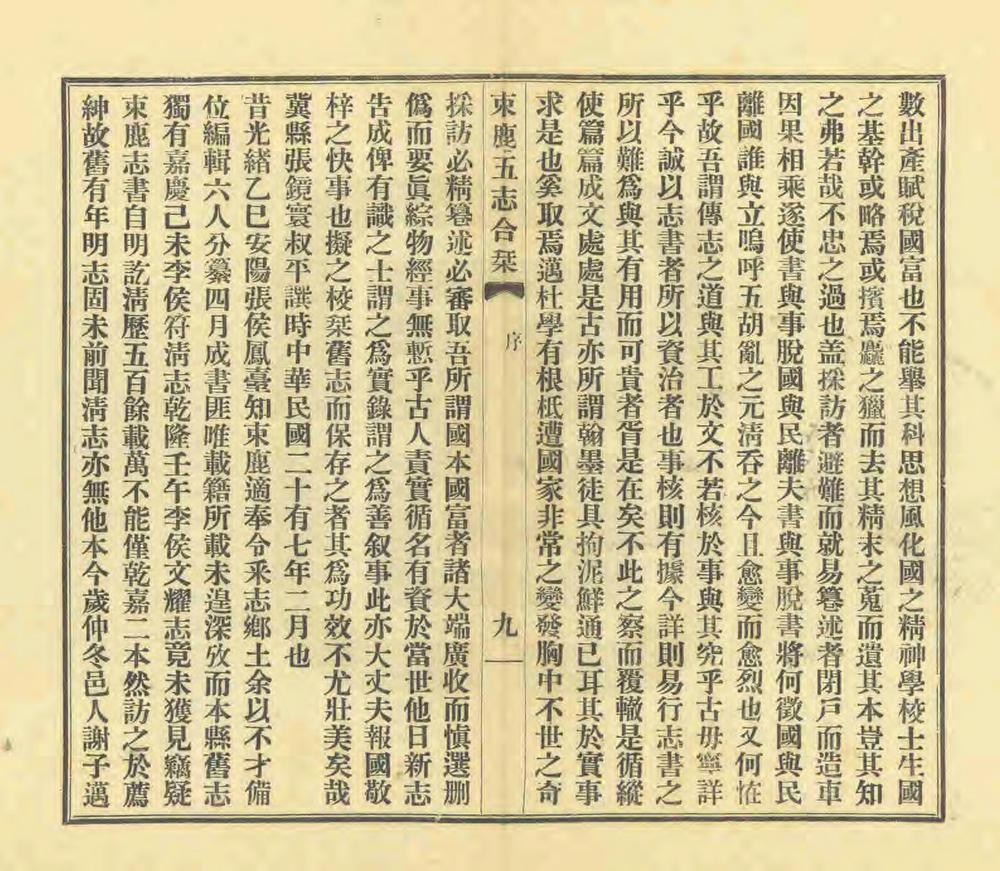 數出產賦稅國富也不能舉其科思想風化國之精神學校士生國
之基幹或略焉或擯焉麤之獵而去其精末之蒐而遺其本豈其知
之弗若哉不忠之過也盖採訪者避難而就易篹述者閉戶而造車
因果相乘遂使書與事脫國與民離夫書與事脫書將何徵國與民
離國誰與立嗚呼五胡亂之元淸吞之今且愈變而愈烈也又何恠
乎故吾謂傳志之道與其工於文不若核於事與其究乎古毋寧詳
乎今誠以志書者所以資治者也事核則有據今詳則易行志書之
所以難爲與其有用而可貴者胥是在矣不此之察而覆轍是循縱
使篇篇成文處處是古亦所謂翰墨徒具拘泥鮮通已耳其於實事
求是也奚取焉邁杜學有根柢遭國家非常之變發胸中不世之奇
束鹿五志合栞
序
九
採訪必精篹述必審取吾所謂國本國富者諸大端廣收而愼選删
僞而要眞綜物經事無慙乎古人責實循名有資於當世他日新志
告成俾有識之士謂之爲實錄謂之爲善叙事此亦大丈夫報國敬
梓之快事也擬之校栞舊志而保存之者其爲功效不尤壯美矣哉
冀縣張鏡寰叔平譔時中華民國二十有七年二月也
昔光緖乙巳安陽張侯鳳臺知束鹿適奉令釆志鄕土余以不才備
位編輯六人分纂四月成書匪唯載籍所載未遑深攷而本縣舊志
獨有嘉慶己未李侯符淸志乾隆壬午李侯文耀志竟未獲見竊疑
束鹿志書自明訖淸歷五百餘載萬不能僅乾嘉二本然訪之於薦
紳故舊有年明志固未前聞淸志亦無他本今歲仲冬邑人謝子邁